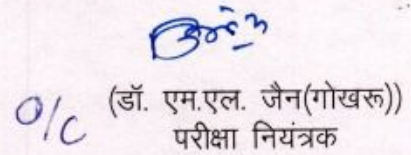 O/C (डॉ. एम.एल. जैन(गोखरू))
परीक्षा नियंत्रक